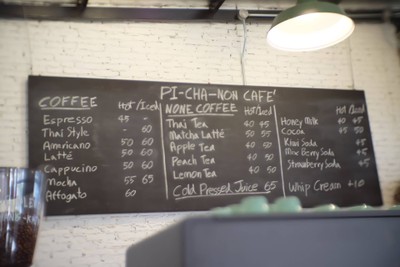 PI-CHA-NON CAFE'
COFFEE Hot/Iced
Espresso 45 -
Thai Style - 60
Americano 50 60
Latté 50 60
Cappucino 50 60
Mocha 55 65
Affogato 60
NONE COFFEE Hot/Iced
Thai Tea 40 45
Matcha Latté 50 55
Apple Tea 40 50
Peach Tea 40 50
Lemon Tea 40 50
Cold Pressed Juice 65
Hot/Iced
Honey Milk 40 45
Cocoa 45 50
Kiwi Soda 45
Blue Berry Soda 45
Strawberry Soda 45
Whip Cream +10